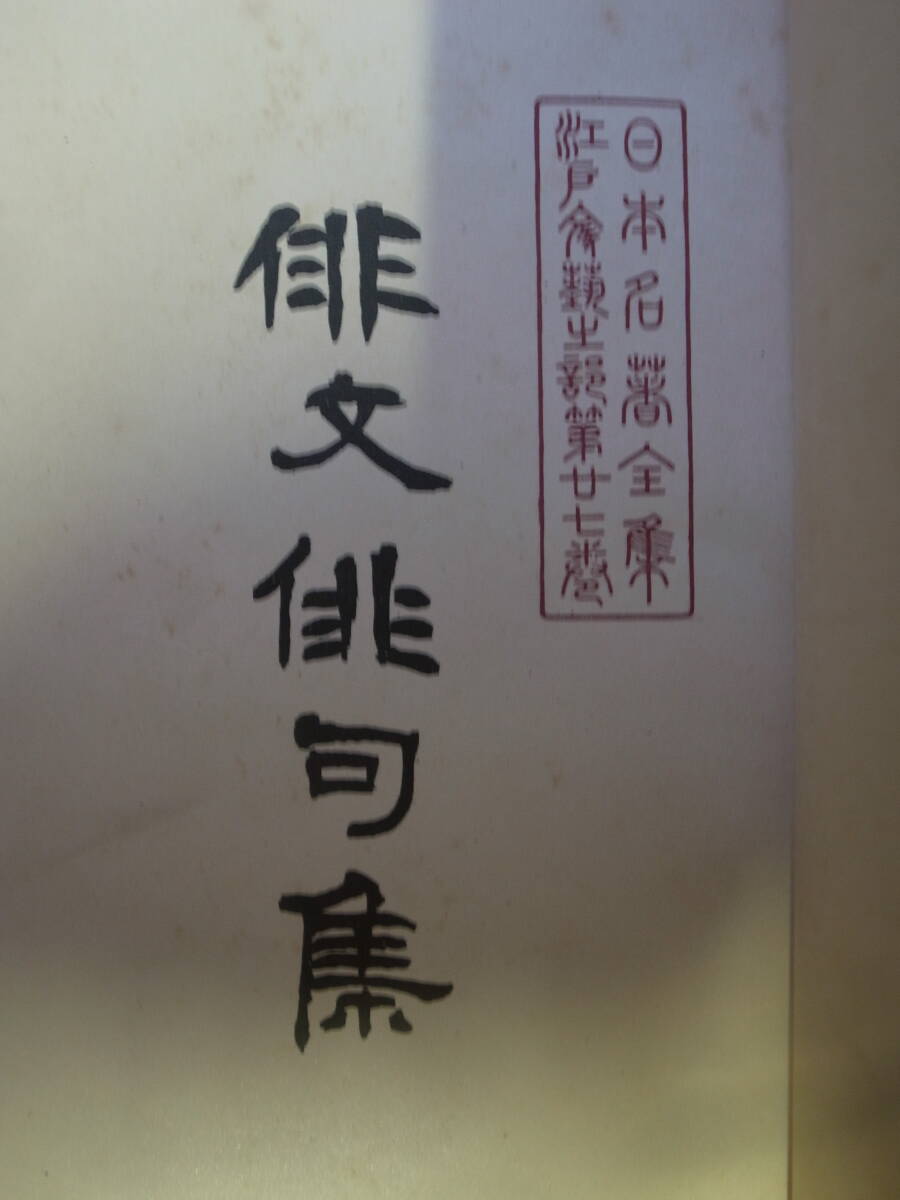 日本名著全集
江戸文藝之部第廿七巻
俳文俳句集